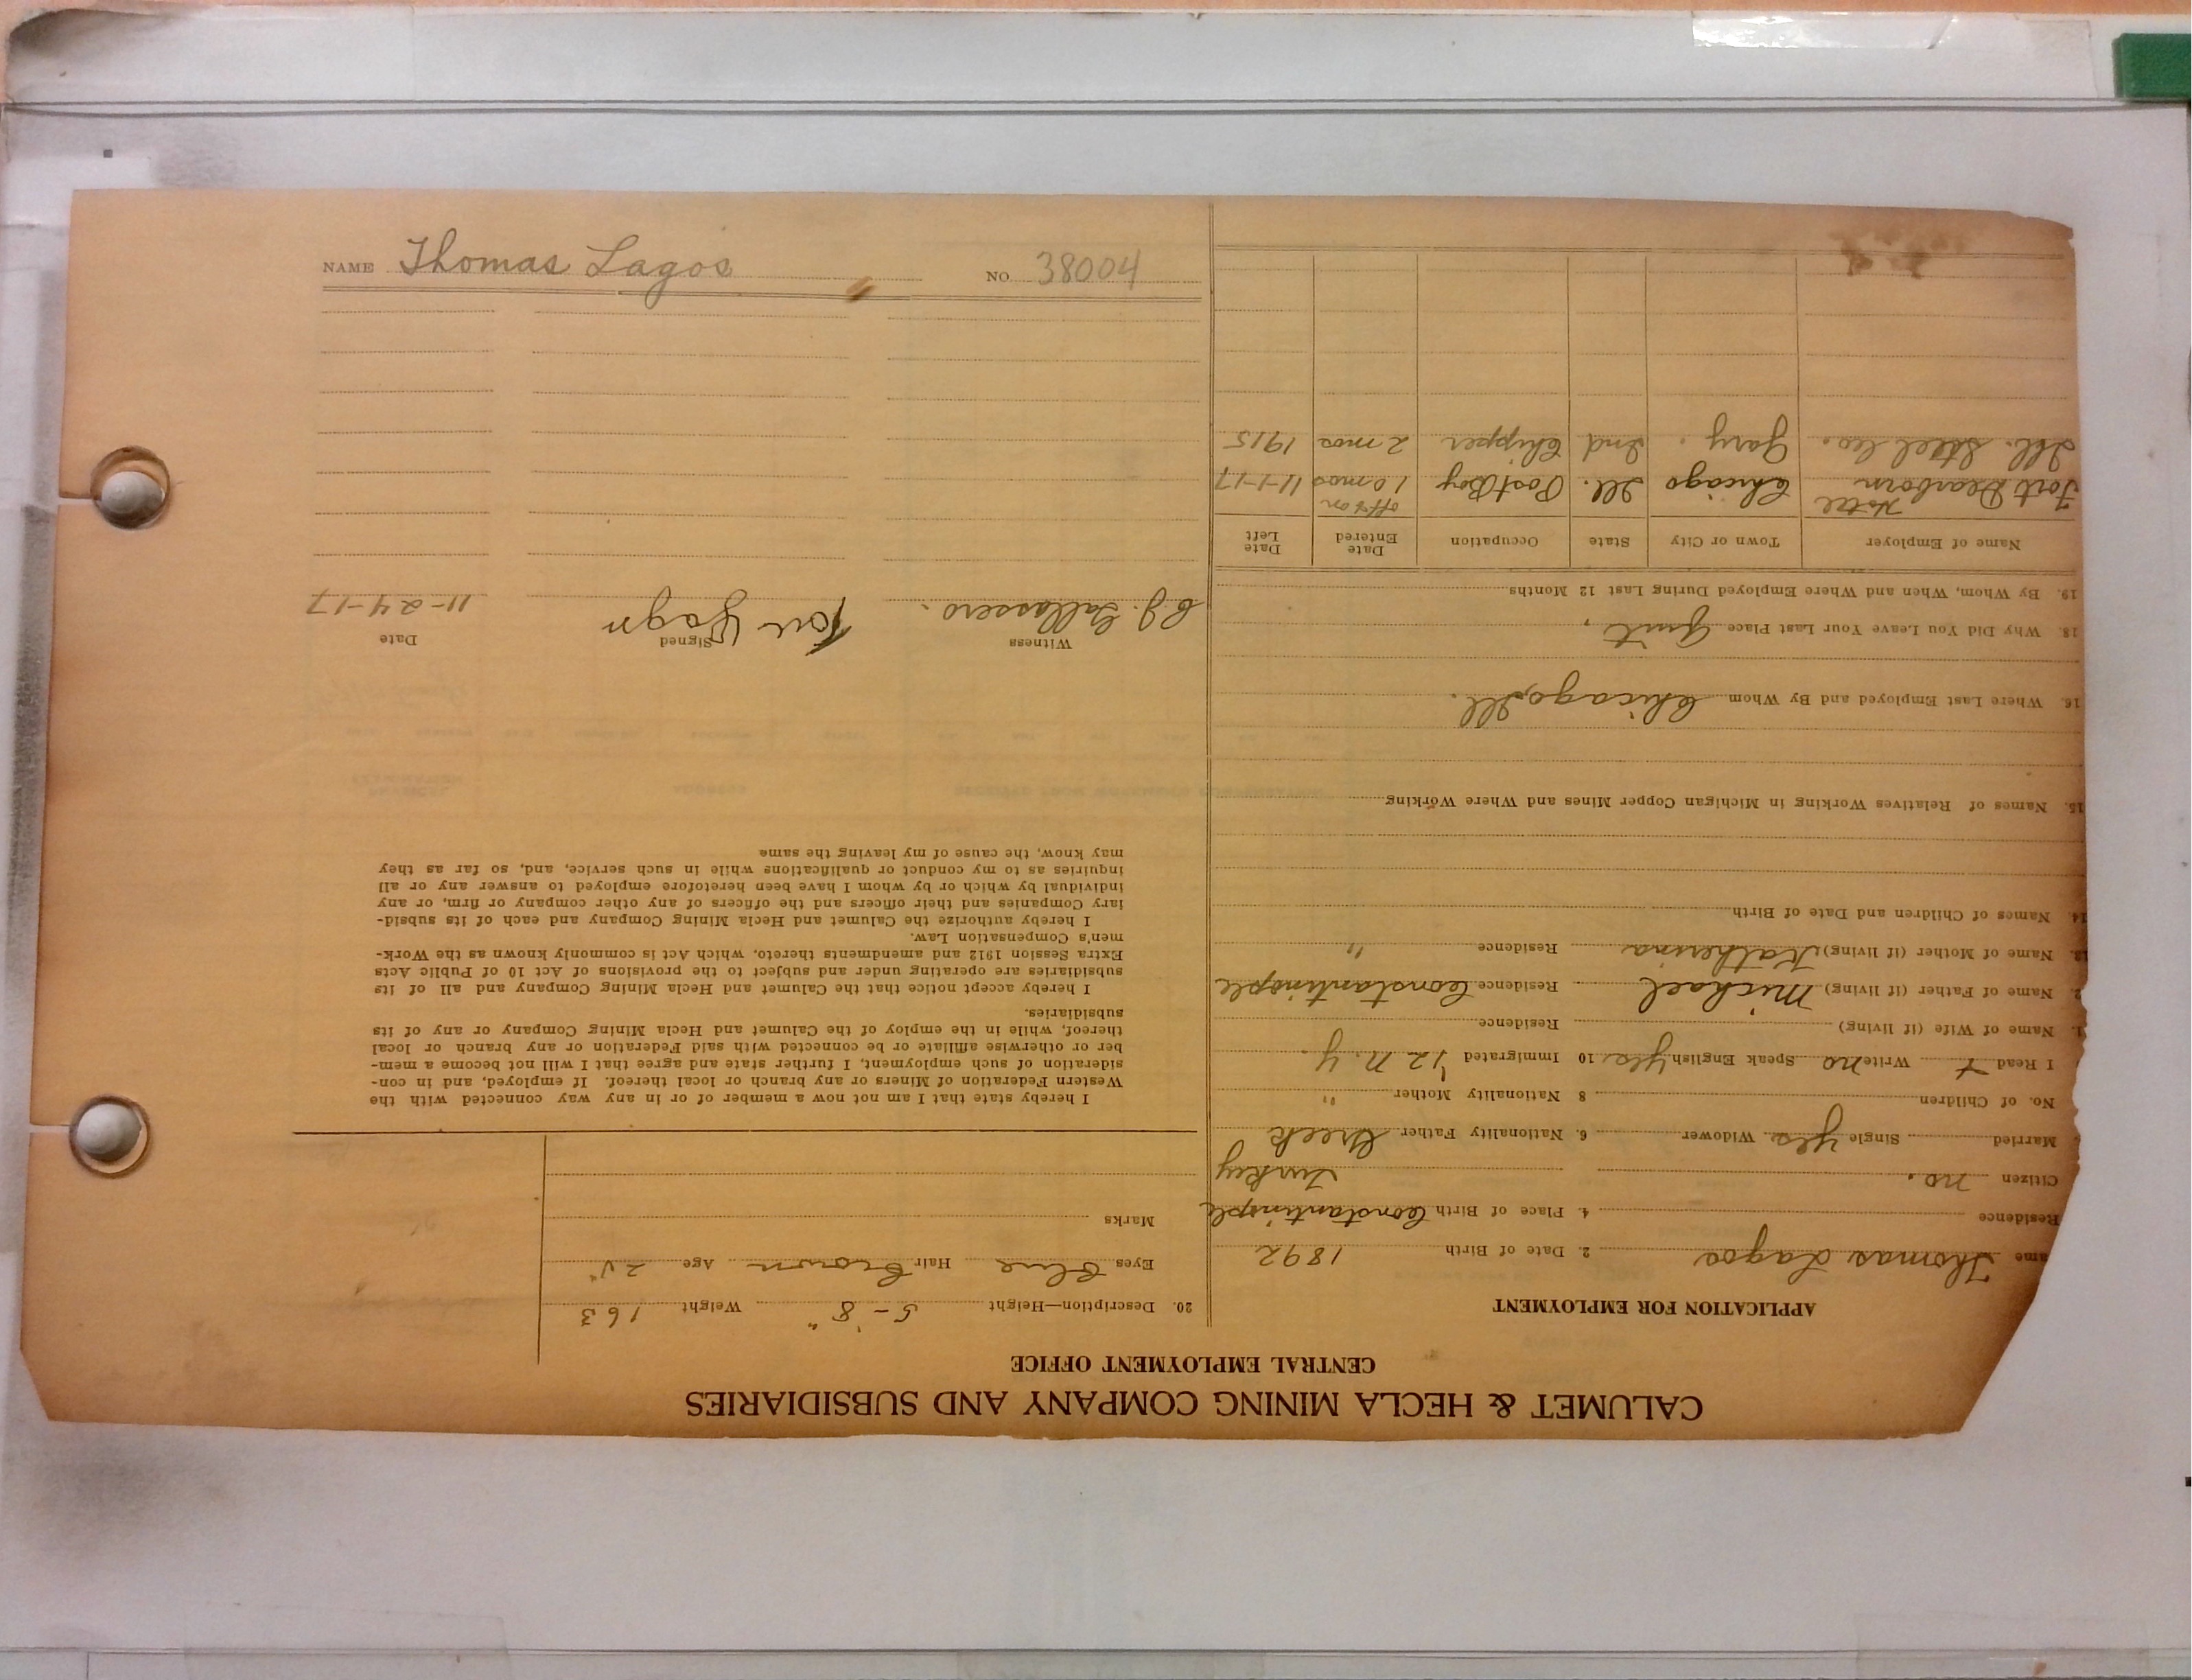 CALUMET & HECLA MINING COMPANY AND SUBSIDIARIES
CENTRAL EMPLOYMENT OFFICE
APPLICATION FOR EMPLOYMENT
ame Thomas Lagos 2. Date of Birth 1892
Residence 4. Place of Birth Constantinople
Citizen no. Turkey
Married Single yes Widower 6. Nationality Father Greek
No. of Children 8 Nationality Mother "
I Read + Write no Speak English yes 10 Immigrated '12 N.Y.
1. Name of Wife (if living) Residence
2. Name of Father (if living) Michael Residence Constantinople
13. Name of Mother (if living) Katherina Residence "
14. Names of Children and Date of Birth
15. Names of Relatives Working in Michigan Copper Mines and Where Working
16. Where Last Employed and By Whom Chicago, Ill.
18. Why Did You Leave Your Last Place Quit.
19. By Whom, When and Where Employed During Last 12 Months
Name of Employer Town or City State Occupation Date Entered Date Left
Fort Dearborn Hotel Chicago Ill. Post Boy off & on 10 mos 11-1-17
Ill. Steel Co. Gary. Ind Chipper 2 mos 1915
20. Description—Height 5-'8" Weight 163
Eyes Blue Hair Brown Age 25
Marks
I hereby state that I am not now a member of or in any way connected with the
Western Federation of Miners or any branch or local thereof. If employed, and in con-
sideration of such employment, I further state and agree that I will not become a mem-
ber or otherwise affiliate or be connected with said Federation or any branch or local
thereof, while in the employ of the Calumet and Hecla Mining Company or any of its
subsidiaries.
I hereby accept notice that the Calumet and Hecla Mining Company and all of its
subsidiaries are operating under and subject to the provisions of Act 10 of Public Acts
Extra Session 1912 and amendments thereto, which Act is commonly known as the Work-
men's Compensation Law.
I hereby authorize the Calumet and Hecla Mining Company and each of its subsid-
iary Companies and their officers and the officers of any other company or firm, or any
individual by which or by whom I have been heretofore employed to answer any or all
inquiries as to my conduct or qualifications while in such service, and, so far as they
may know, the cause of my leaving the same
Witness Signed Date
Tom 11-24-17
NAME Thomas Lagos NO. 38004